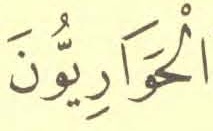 الْحَوَارِيُّونَ